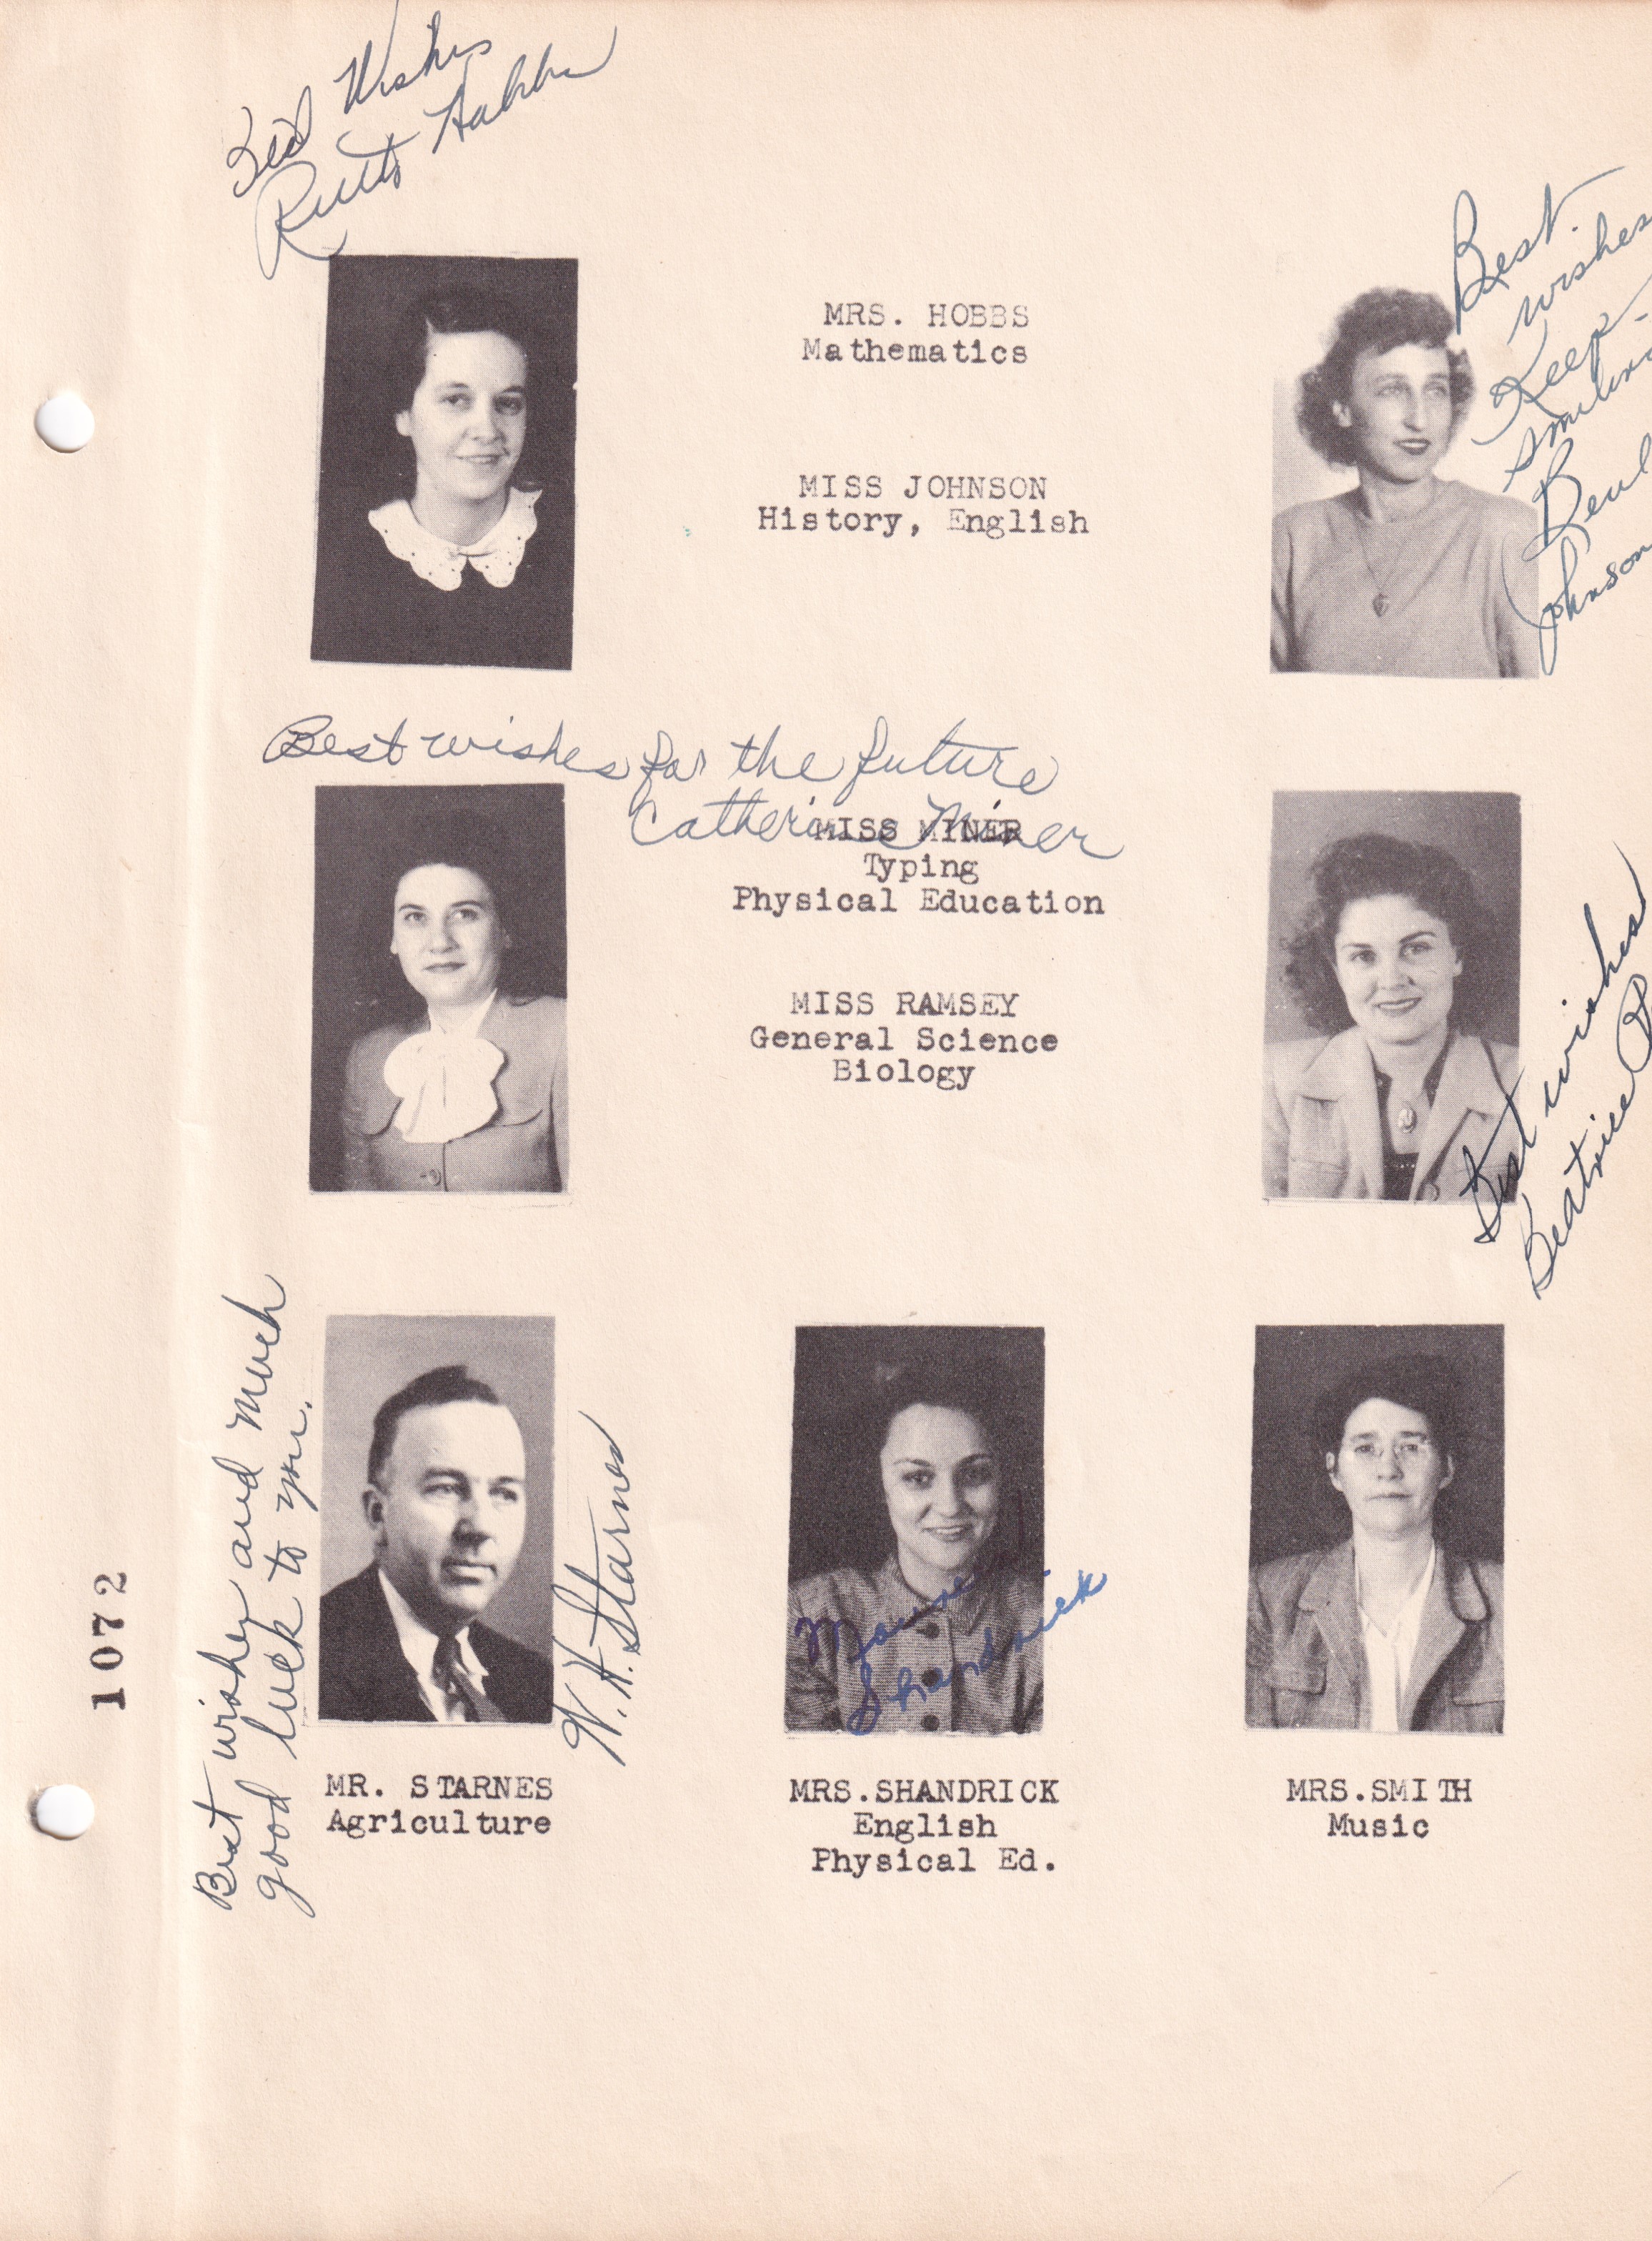 Best Wishes
Ruth Hobbs
MRS. HOBBS
Mathematics
MISS JOHNSON
History, English
Best
wishes
Keep
smiling
Beul
Johnson
Best wishes for the future
Catherine Miner
MISS MINER
Typing
Physical Education
MISS RAMSEY
General Science
Biology
Best wishes
Beatrice R
Best wishes and much
good luck to you.
W. H. Starnes
MR. STARNES
Agriculture
Shandrick
MRS.SHANDRICK
English
Physical Ed.
MRS.SMITH
Music
1072